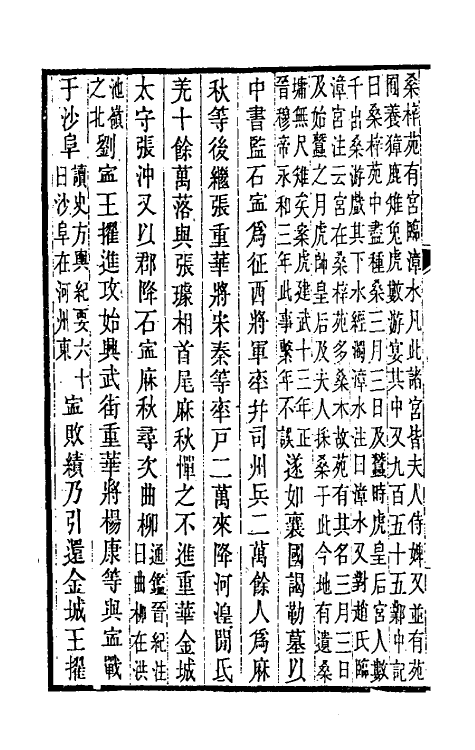 桑梓苑有宮臨漳水凡此諸宮皆夫人侍婢又並有苑
囿養獐鹿雉兔虎數游宴其中又九百五十五鄴中記
曰桑梓苑中盡種桑三月三日及蠶時虎皇后宮人數
千出桑游戲其下水經濁漳水注曰漳水又對趙氏臨
漳宮注云宮在桑梓苑多桑木故苑有其名三月三日
及始蠶之月虎帥皇后及夫人採桑于此今地有遺桑
墉無尺雉矣案虎建武十三年正
晉穆帝永和三年此事繫年不誤
遂如襄國謁勒墓以
中書監石寍爲征西將軍率并司州兵二萬餘人爲麻
秋等後繼張重華將宋秦等率戶二萬來降河湟閒氐
羌十餘萬落與張璩相首尾麻秋憚之不進重華金城
太守張沖又以郡降石寍麻秋尋次曲柳
通鑑晉紀注
曰曲柳在洪
池嶺
之北
劉寍王擢進攻始興武街重華將楊康等與寍戰
于沙阜
讀史方輿紀要六十
曰沙阜在河州東
寍敗績乃引還金城王擢